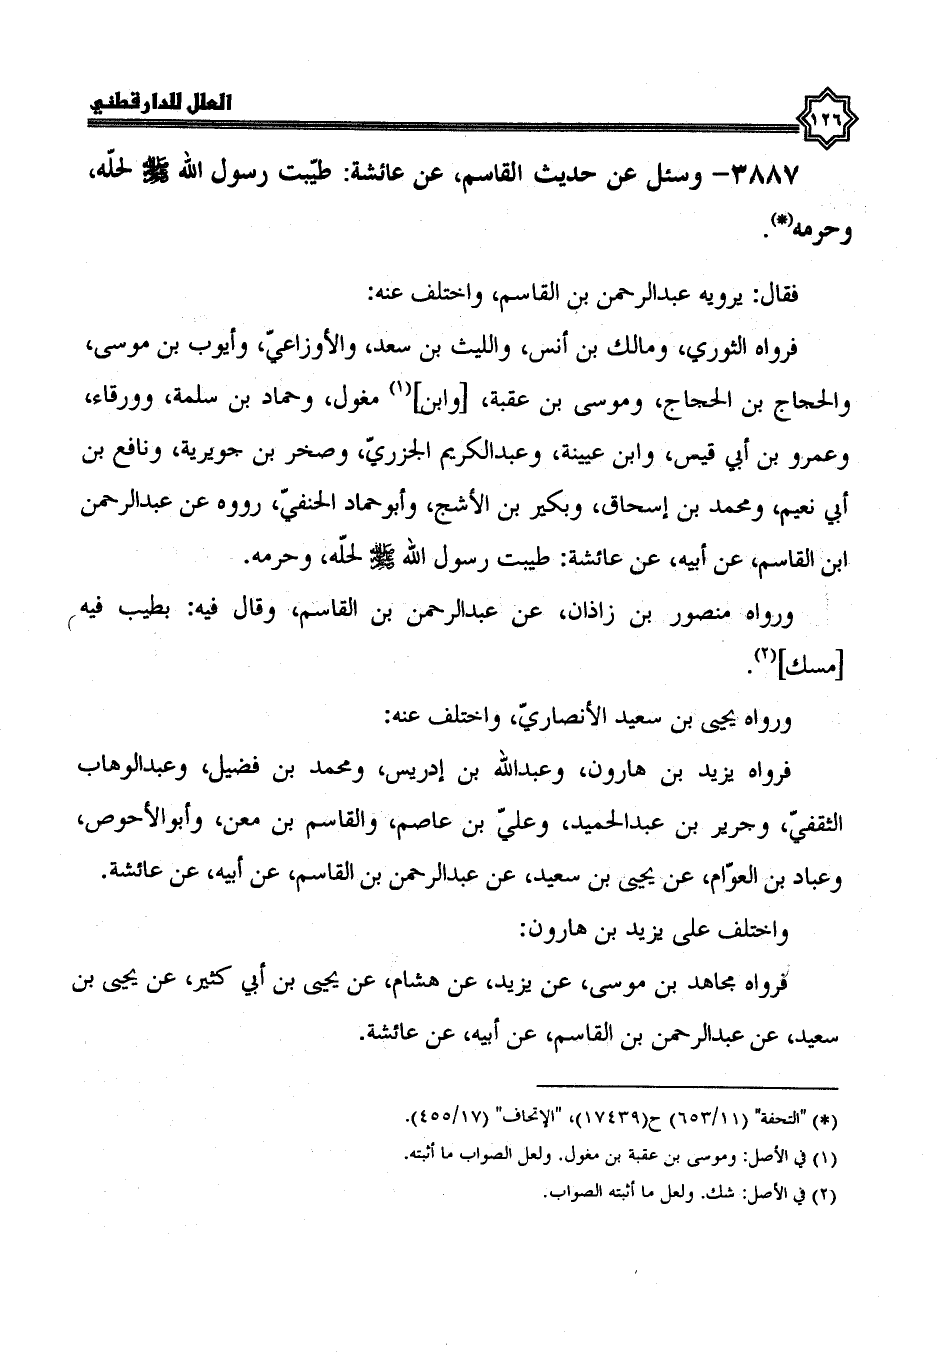 العلل للدارقطني
١٢٦
٣٨٨٧- وسئل عن حديث القاسم، عن عائشة: طيّبت رسول الله ﷺ لحلّه،
وحرمه(*).
فقال: يرويه عبدالرحمن بن القاسم، واختلف عنه:
فرواه الثوري، ومالك بن أنس، والليث بن سعد، والأوزاعيّ، وأيوب بن موسى،
والحجاج بن الحجاج، وموسى بن عقبة، [وابن](١) مغول، وحماد بن سلمة، وورقاء،
وعمرو بن أبي قيس، وابن عيينة، وعبدالكريم الجزريّ، وصخر بن جويرية، ونافع بن
أبي نعيم، ومحمد بن إسحاق، وبكير بن الأشج، وأبوحماد الحنفيّ، رووه عن عبدالرحمن
ابن القاسم، عن أبيه، عن عائشة: طيبت رسول الله ﷺ لحلّه، وحرمه.
ورواه منصور بن زاذان، عن عبدالرحمن بن القاسم، وقال فيه: بطيب فيه
[مسك](٢).
ورواه يحيى بن سعيد الأنصاريّ، واختلف عنه:
فرواه يزيد بن هارون، وعبدالله بن إدريس، ومحمد بن فضيل، وعبدالوهاب
الثقفيّ، وجرير بن عبدالحميد، وعليّ بن عاصم، والقاسم بن معن، وأبوالأحوص،
وعباد بن العوّام، عن يحيى بن سعيد، عن عبدالرحمن بن القاسم، عن أبيه، عن عائشة.
واختلف على يزيد بن هارون:
فرواه مجاهد بن موسى، عن يزيد، عن هشام، عن يحيى بن أبي كثير، عن يحيى بن
سعيد، عن عبدالرحمن بن القاسم، عن أبيه، عن عائشة.
(*) "التحفة" (٦٥٣/١١) ح(١٧٤٣٩)، "الإتحاف" (٤٥٥/١٧).
(١) في الأصل: وموسى بن عقبة بن مغول. ولعل الصواب ما أثبته.
(٢) في الأصل: شك. ولعل ما أثبته الصواب.